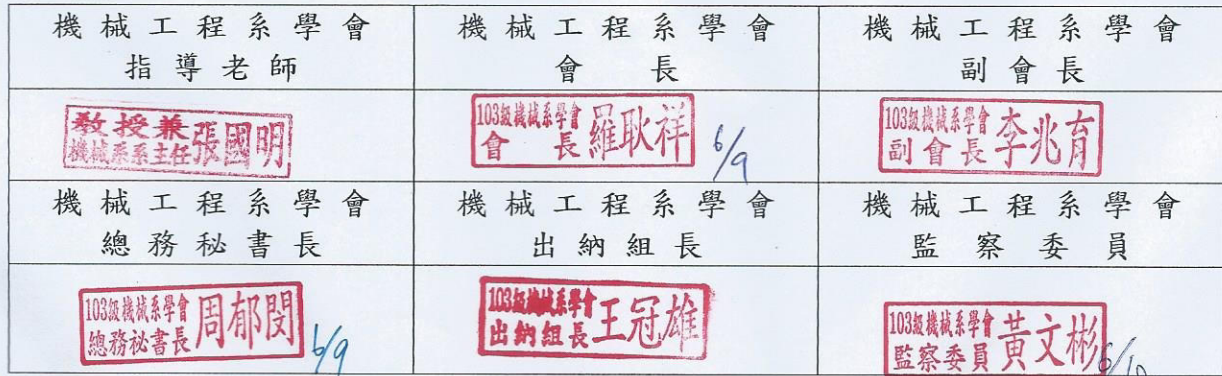 機械工程系學會
指導老師
機械工程系學會
會長
機械工程系學會
副會長
教授兼
機械系系主任張國明
103級機械系學會
會長羅耿祥
6/9
103級機械系學會
副會長李兆育
機械工程系學會
總務秘書長
機械工程系學會
出納組長
機械工程系學會
監察委員
103級機械系學會
總務祕書長周郁閔
6/9
103級機械系學會
出納組長王冠雄
103級機械系學會
監察委員黃文彬
6/10